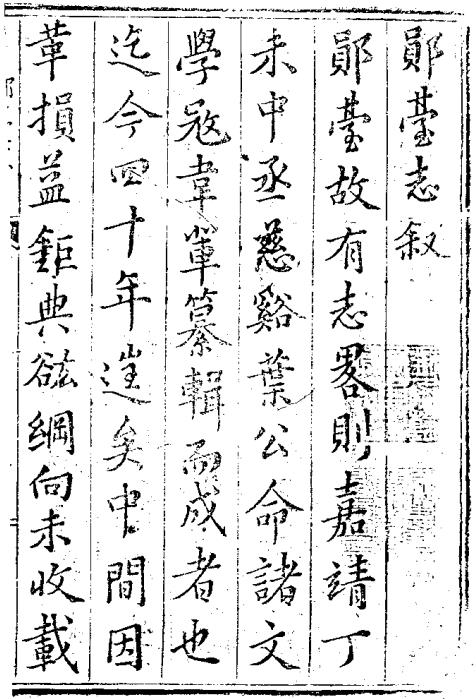 鄖臺志叙
鄖臺故有志畧則嘉靖丁
未中丞慈谿葉公命諸文
學冦韋軰纂輯而成者也
迄今四十年矣中間因
革損益鉅典綱向未收載